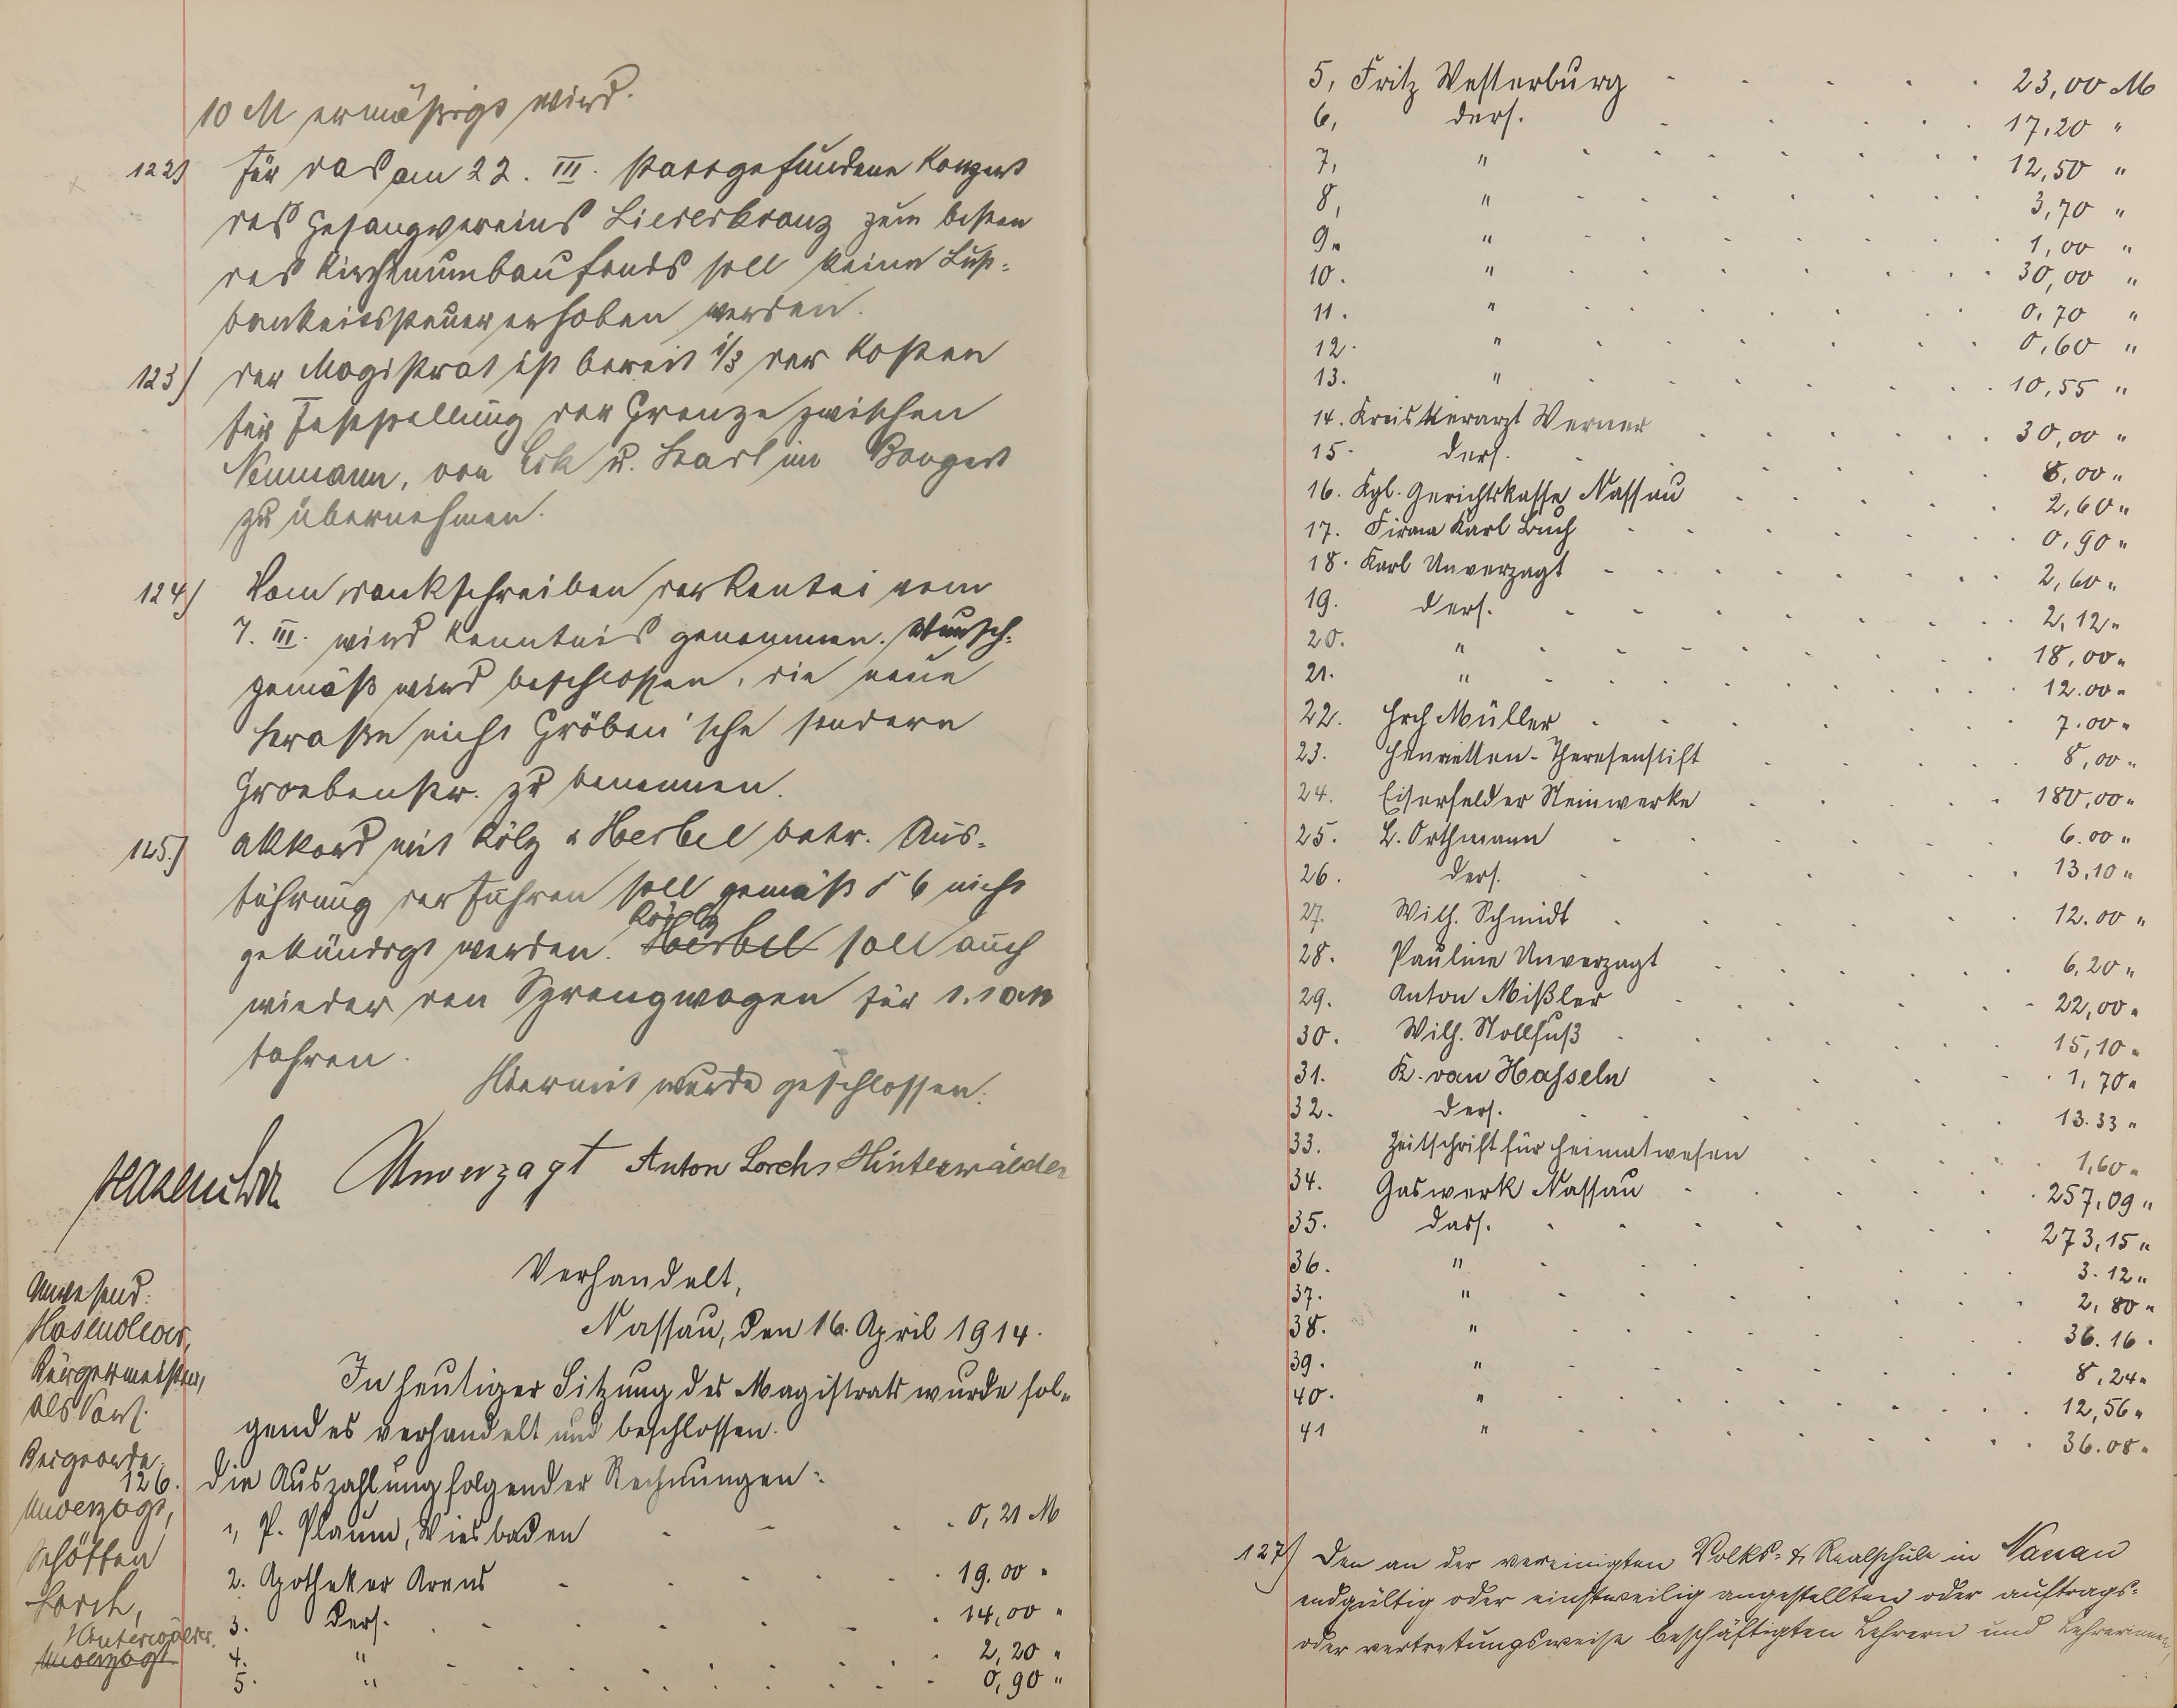 10 M ermäßigt wird.
122) Für das am 22. III. stattgefundene Konzert
des Gesangvereins Liederkranz zum besten
des Kirchenumbaufonds soll keine Lust-
barkeitssteuer erhoben werden.
123) Der Magistrat ist bereit 1/3 der Kosten
für Feststellung der Grenze zwischen
Neumann, von Eck u. Stadt im Bongert
zu übernehmen.
124) Vom Dankschreiben der Rentei vom
7. III. wird Kenntnis genommen. Wunsch-
gemäß wird beschlossen, die neue
Straße nicht Gröben'sche sondern
Groebenstr. zu benennen.
125.) Akkord mit Kölz u Herbel betr. Aus-
führung der Fuhren soll gemäß § 6 nicht
gekündigt werden. Herbel Kölz soll auch
wieder den Sprengwagen für 1.10 M
fahren.
Hiermit wurde geschlossen.
Hasenclever Unverzagt Anton Lorch Hinterwälder
Verhandelt,
Nassau, den 16. April 1914.
Anwesend:
Hasenclever,
Bürgermeister,
als Vors.
Beigeordn.
Unverzagt,
Schöffen
Lorch,
Hinterwälder.
Unverzagt
In heutiger Sitzung des Magistrats wurde fol-
gendes verhandelt und beschlossen.
126. Die Auszahlung folgender Rechnungen:
1, P. Plaum, Wiesbaden 0,21 M
2. Apotheker Arens 19.00 "
3. Ders. 14,00 "
4. " 2,20 "
5. " 0,90 "
5, Fritz Westerburg 23,00 M
6, ders. 17,20 "
7, " 12,50 "
8, " 3,70 "
9. " 1,00 "
10. " 30,00 "
11. " 0,70 "
12. " 0,60 "
13. " 10,55 "
14. Kreistierarzt Werner 30,00 "
15. ders. 8,00 "
16. Kgl. Gerichtskasse Nassau 2,60 "
17. Firma Karl Buch 0,90 "
18. Karl Unverzagt 2,60 "
19. ders. 2,12 "
20. " 18,00 "
21. " 12.00 "
22. Hrch Müller 7.00 "
23. Henrietten-Theresenstift 8,00 "
24. Eiserfelder Steinwerke 180,00 "
25. L. Orthmann 6.00 "
26. ders. 13,10 "
27. Wilh. Schmidt 12.00 "
28. Pauline Unverzagt 6,20 "
29. Anton Mißler 22,00 "
30. Wilh. Stollfuß 15,10 "
31. K. van Hasseln 1,70 "
32. ders. 13.33 "
33. Zeitschrift für Heimatwesen 1,60 "
34. Gaswerk Nassau 257,09 "
35. dass. 273,15 "
36. " 3.12 "
37. " 2,80 "
38. " 36.16 "
39. " 8,24 "
40. " 12,56 "
41 " 36.08 "
127) Den an der vereinigten Volks- & Realschule in Nassau
endgültig oder einstweilig angestellten oder auftrags-
oder vertretungsweise beschäftigten Lehrern und Lehrerinnen,